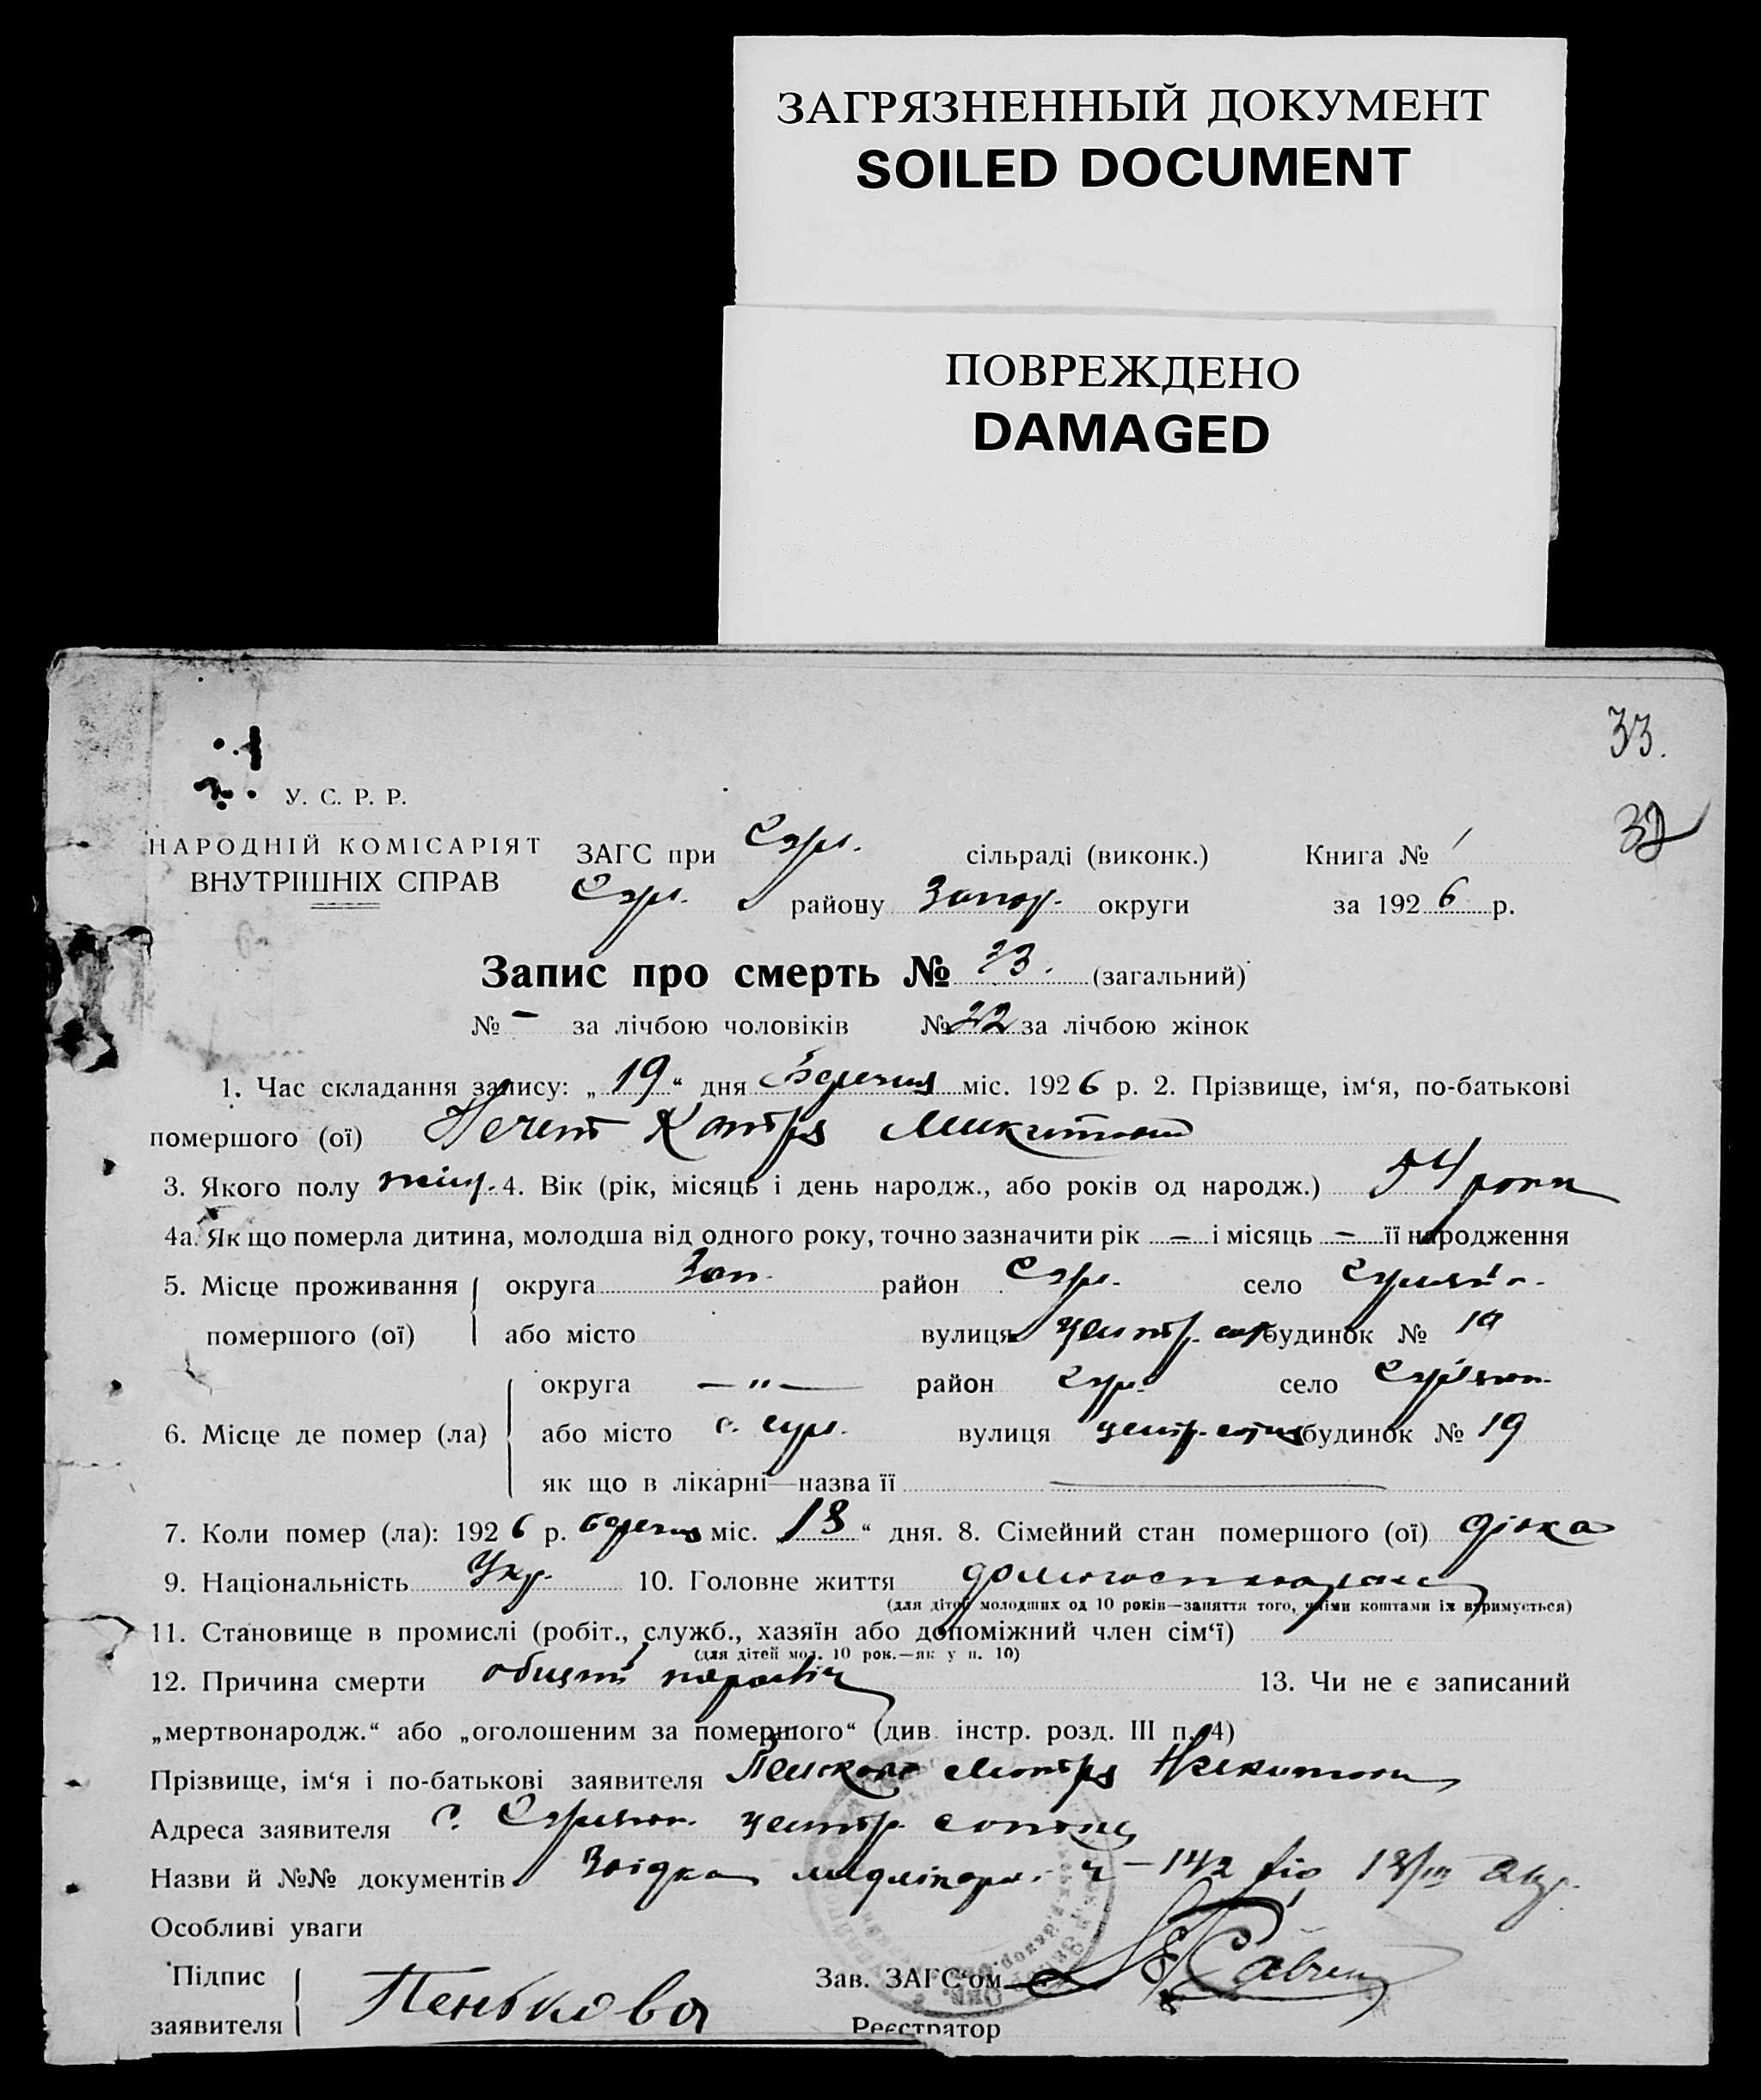 ЗАГРЯЗНЕННЫЙ ДОКУМЕНТ
SOILED DOCUMENT
ПОВРЕЖДЕНО
DAMAGED
33.
32
У. С. Р. Р.
НАРОДНІЙ КОМІСАРІЯТ
ВНУТРІШНІХ СПРАВ
ЗАГС при сільраді (виконк.) Книга № 1
району Запор. округи за 1926 р.
Запис про смерть № 33. (загальний)
№ - за лічбою чоловіків № 22 за лічбою жінок
1. Час складання запису: „19“ дня березня міс. 1926 р. 2. Прізвище, ім‘я, по-батькові
помершого (ої) Нечет Микитовна
3. Якого полу жін. 4. Вік (рік, місяць і день народж., або років од народж.) 54 роки
4а. Як що померла дитина, молодша від одного року, точно зазначити рік — і місяць — її народження
5. Місце проживання округа Зап. район село
помершого (ої) або місто вулиця центр. будинок № 19
округа — „ — район село
6. Місце де помер (ла) або місто вулиця центр. сотня будинок № 19
як що в лікарні—назва її —
7. Коли помер (ла): 1926 р. березня міс. 18 “ дня. 8. Сімейний стан помершого (ої) дівка
9. Національність Укр. 10. Головне життя
(для дітей молодших од 10 років—заняття того, чиїми коштами їх втримується)
11. Становище в промислі (робіт., служб., хазяїн або допоміжний член сім‘ї)
(для дітей мол. 10 рок.—як у п. 10)
12. Причина смерти общий параліч 13. Чи не є записаний
„мертвонародж.“ або „оголошеним за помершого“ (див. інстр. розд. III п. 4)
Прізвище, ім‘я і по-батькові заявителя Пенькова Мотря Микитовна
Адреса заявителя с. центр. сотня
Назви й №№ документів ч - 142 від 18/III
Особливі уваги
Підпис Зав. ЗАГС‘ом
заявителя Пенькова Реєстратор